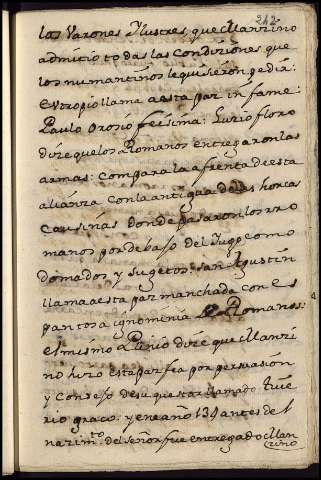 242
los Varones Ilustres, que Manzino
admitio todas las condiziones que
los numantinos le quiseron pedir:
Eutropio llama a esta paz infame:
Paulo Orosio feissima: Luzio floro
dize que los Romanos entregaron las
armas: compara la afrenta de esta
alianza con la antigua de las horcas
Causinas donde pasaron los rro
manos por debaso del Jugo como
domados y sugetos: san Agustin
llama a esta paz manchada con es
pantosa ignominia Romanos:
el mismo a Plinio dize que Manzi
no hizo esta paz fea por persuasion
y conseso de su questor llamado
rio graco: y en el año 139 antes del
nazim.to del señor fue entregado Man
zino